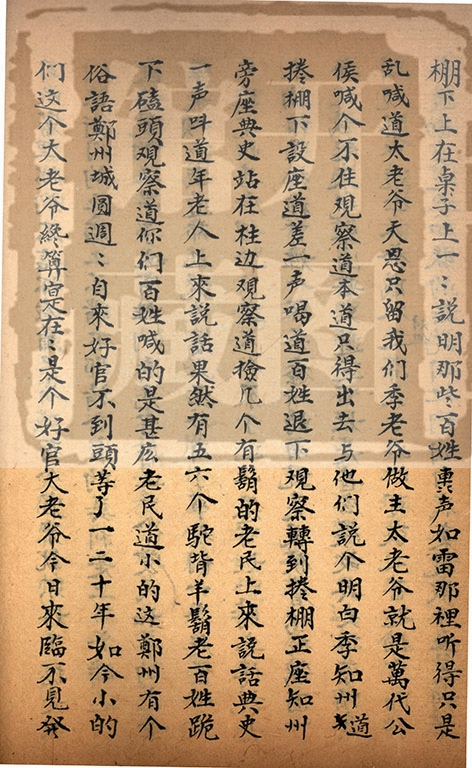 棚下上在桌子上一〻說明那些百姓轟声如雷那裡听得只是
乱喊道太老爷天恩只留我们季老爷做主太老爷就是萬代公
侯喊个不住观察道本道只得出去与他们說个明白季知州道
捲棚下設座道差一声喝道百姓退下观察轉到捲棚正座知州
旁座典史站在柱边观察道捡几个有鬍的老民上來説話典史
一声叫道年老人上來説話果然有五六个駝背羊鬍老百姓跪
下磕頭观察道你们百姓喊的是甚庅老民道小的这鄭州有个
俗語鄭州城圆週〻自來好官不到頭等了一二十年如今小的
们这个大老爷終算寔在〻是个好官大老爷今日來臨不見発